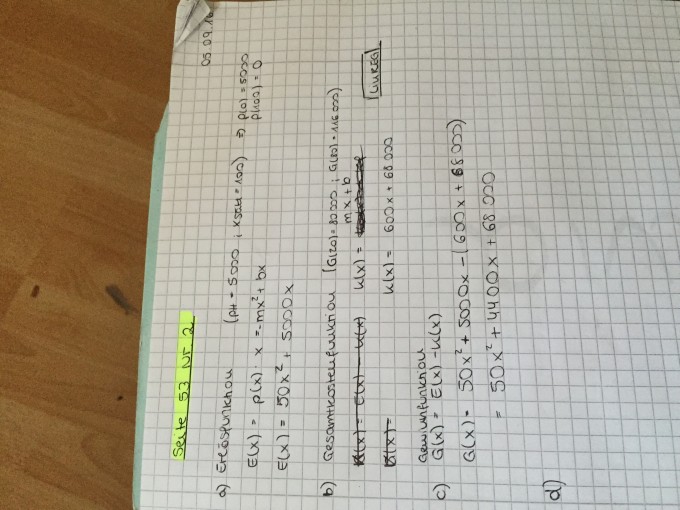 05.09.16
Seite 53 Nr. 2
a) Erlösfunktion (pH = 5000 ; xsätt = 100) ⇒ p(0) = 5000
p(100) = 0
E(x) = p(x) · x = -mx² + bx
E(x) = 50x² + 5000x
b) Gesamtkostenfunktion [G(20) = 80 000 ; G(80) = 116 000]
mx + b
G(x) = E(x) - K(x) K(x) =
G(x) = K(x) = 600x + 68 000 [LINREG]
c) Gewinnfunktion
G(x) = E(x) - K(x)
G(x) = 50x² + 5000x - (600x + 68 000)
= 50x² + 4400x + 68 000
d)